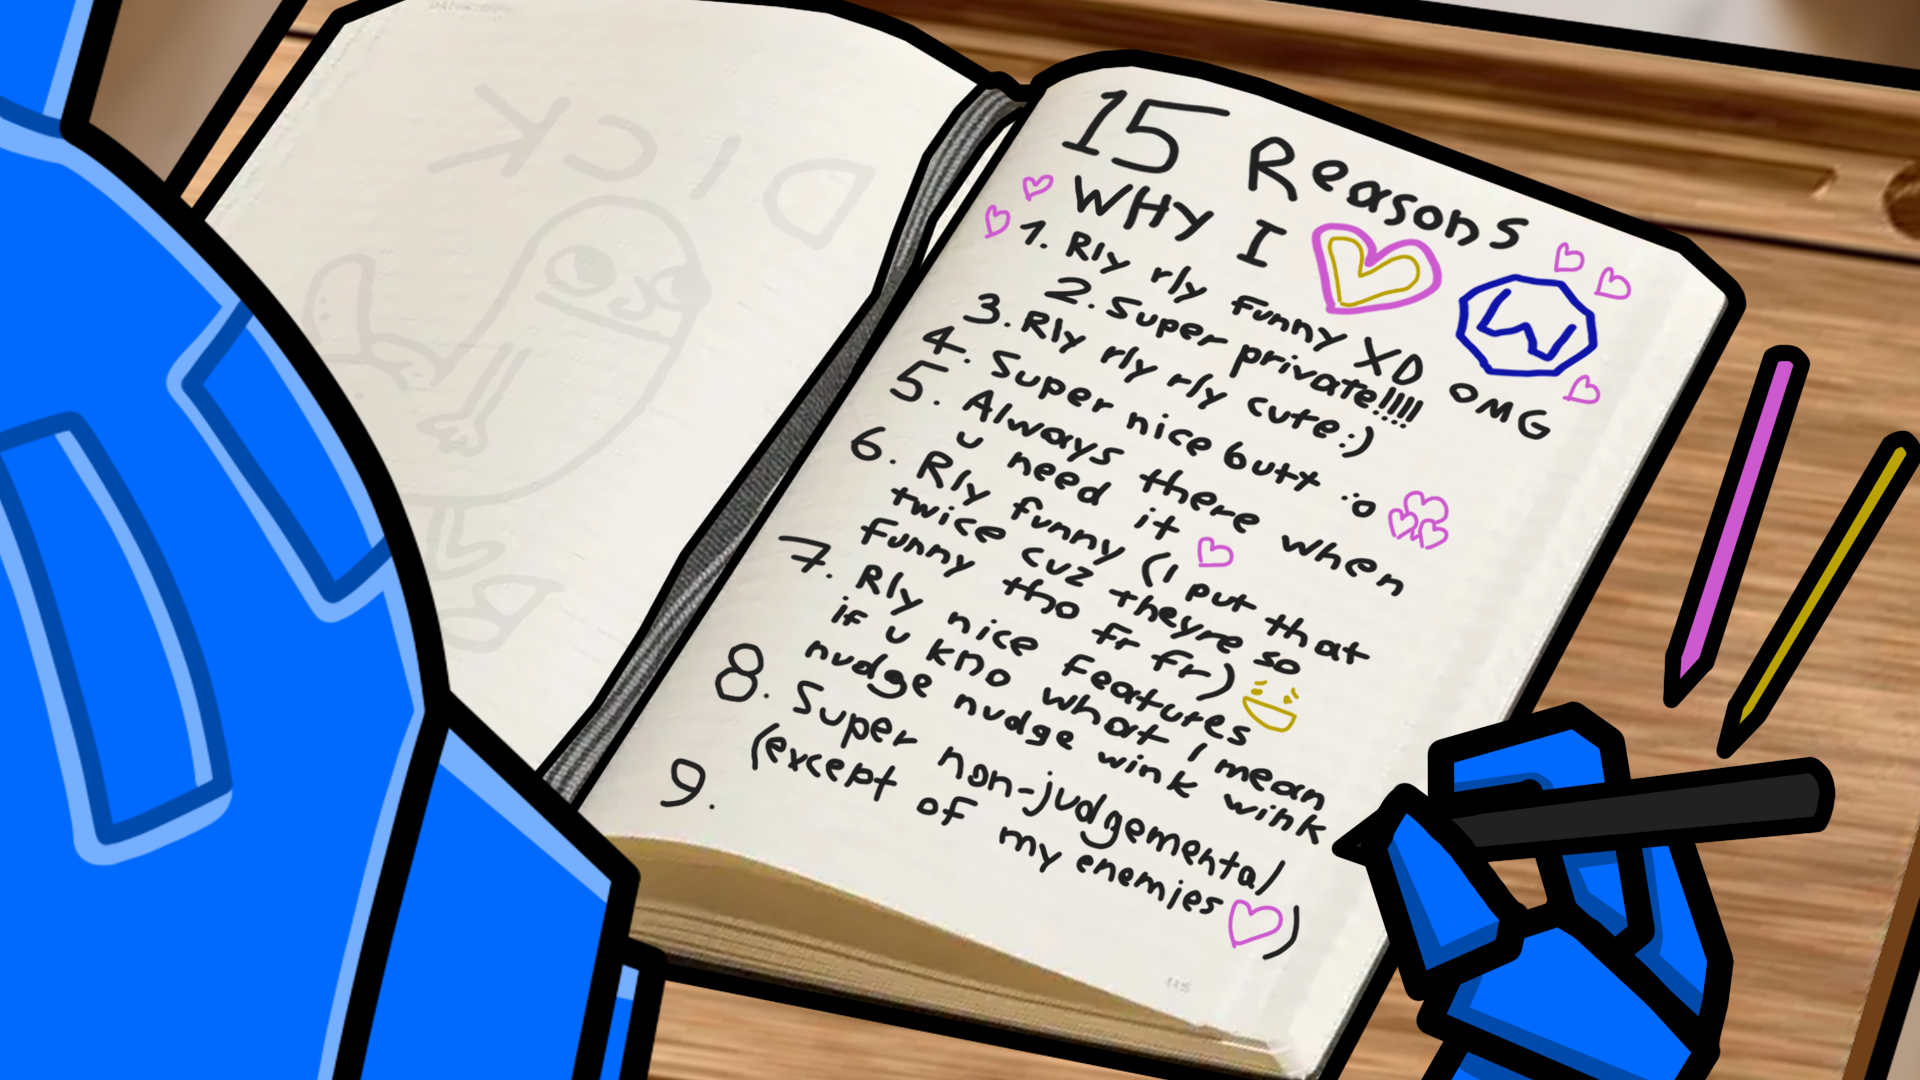 DICK
15 Reasons
WHY I
1. Rly rly funny XD OMG
2. Super private!!!!
3. Rly rly rly cute:)
4. Super nice butt :o
5. Always there when
u need it
6. Rly funny (I put that
twice cuz theyre so
funny tho fr fr)
7. Rly nice features
if u kno what I mean
nudge nudge wink wink
8. Super non-judgemental
(except of my enemies )
9.
115